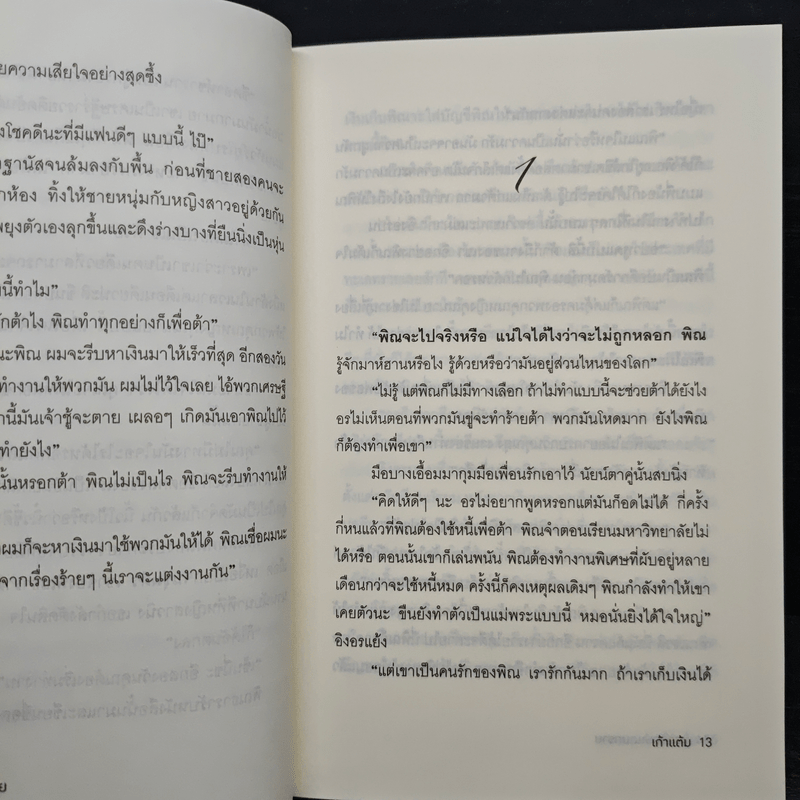 ยความเสียใจอย่างสุดซึ้ง
งโชคดีนะที่มีแฟนดีๆ แบบนี้ ไป๊”
ฐานัสจนล้มลงกับพื้น ก่อนที่ชายสองคนจะ
าห้อง ทิ้งให้ชายหนุ่มกับหญิงสาวอยู่ด้วยกัน
พยุงตัวเองลุกขึ้นและดึงร่างบางที่ยืนนิ่งเป็นหุ่น
นี้ทำไม”
ักต้าไง พิณทำทุกอย่างก็เพื่อต้า”
นะพิณ ผมจะรีบหาเงินมาให้เร็วที่สุด อีกสองวัน
ทำงานให้พวกมัน ผมไม่ไว้ใจเลย ไอ้พวกเศรษฐี
านี้มันเจ้าชู้จะตาย เผลอๆ เกิดมันเอาพิณไปไว้
ทำยังไง”
นั้นหรอกต้า พิณไม่เป็นไร พิณจะรีบทำงานให้
ผมก็จะหาเงินมาใช้พวกมันให้ได้ พิณเชื่อผมนะ
จากเรื่องร้ายๆ นี้เราจะแต่งงานกัน”
ย
1
“พิณจะไปจริงหรือ แน่ใจได้ไงว่าจะไม่ถูกหลอก พิณ
รู้จักมาห์ฮานหรือไง รู้ด้วยหรือว่ามันอยู่ส่วนไหนของโลก”
“ไม่รู้ แต่พิณก็ไม่มีทางเลือก ถ้าไม่ทำแบบนี้จะช่วยต้าได้ยังไง
อรไม่เห็นตอนที่พวกมันขู่จะทำร้ายต้า พวกมันโหดมาก ยังไงพิณ
ก็ต้องทำเพื่อเขา”
มือบางเอื้อมมากุมมือเพื่อนรักเอาไว้ นัยน์ตาคู่นั้นสบนิ่ง
“คิดให้ดีๆ นะ อรไม่อยากพูดหรอกแต่มันก็อดไม่ได้ กี่ครั้ง
กี่หนแล้วที่พิณต้องใช้หนี้เพื่อต้า พิณจำตอนเรียนมหาวิทยาลัยไม่
ได้หรือ ตอนนั้นเขาก็เล่นพนัน พิณต้องทำงานพิเศษที่ผับอยู่หลาย
เดือนกว่าจะใช้หนี้หมด ครั้งนี้ก็คงเหตุผลเดิมๆ พิณกำลังทำให้เขา
เคยตัวนะ ขืนยังทำตัวเป็นแม่พระแบบนี้ หมอนั่นยิ่งได้ใจใหญ่”
อิงอรแย้ง
“แต่เขาเป็นคนรักของพิณ เรารักกันมาก ถ้าเราเก็บเงินได้
เก้าแต้ม 13